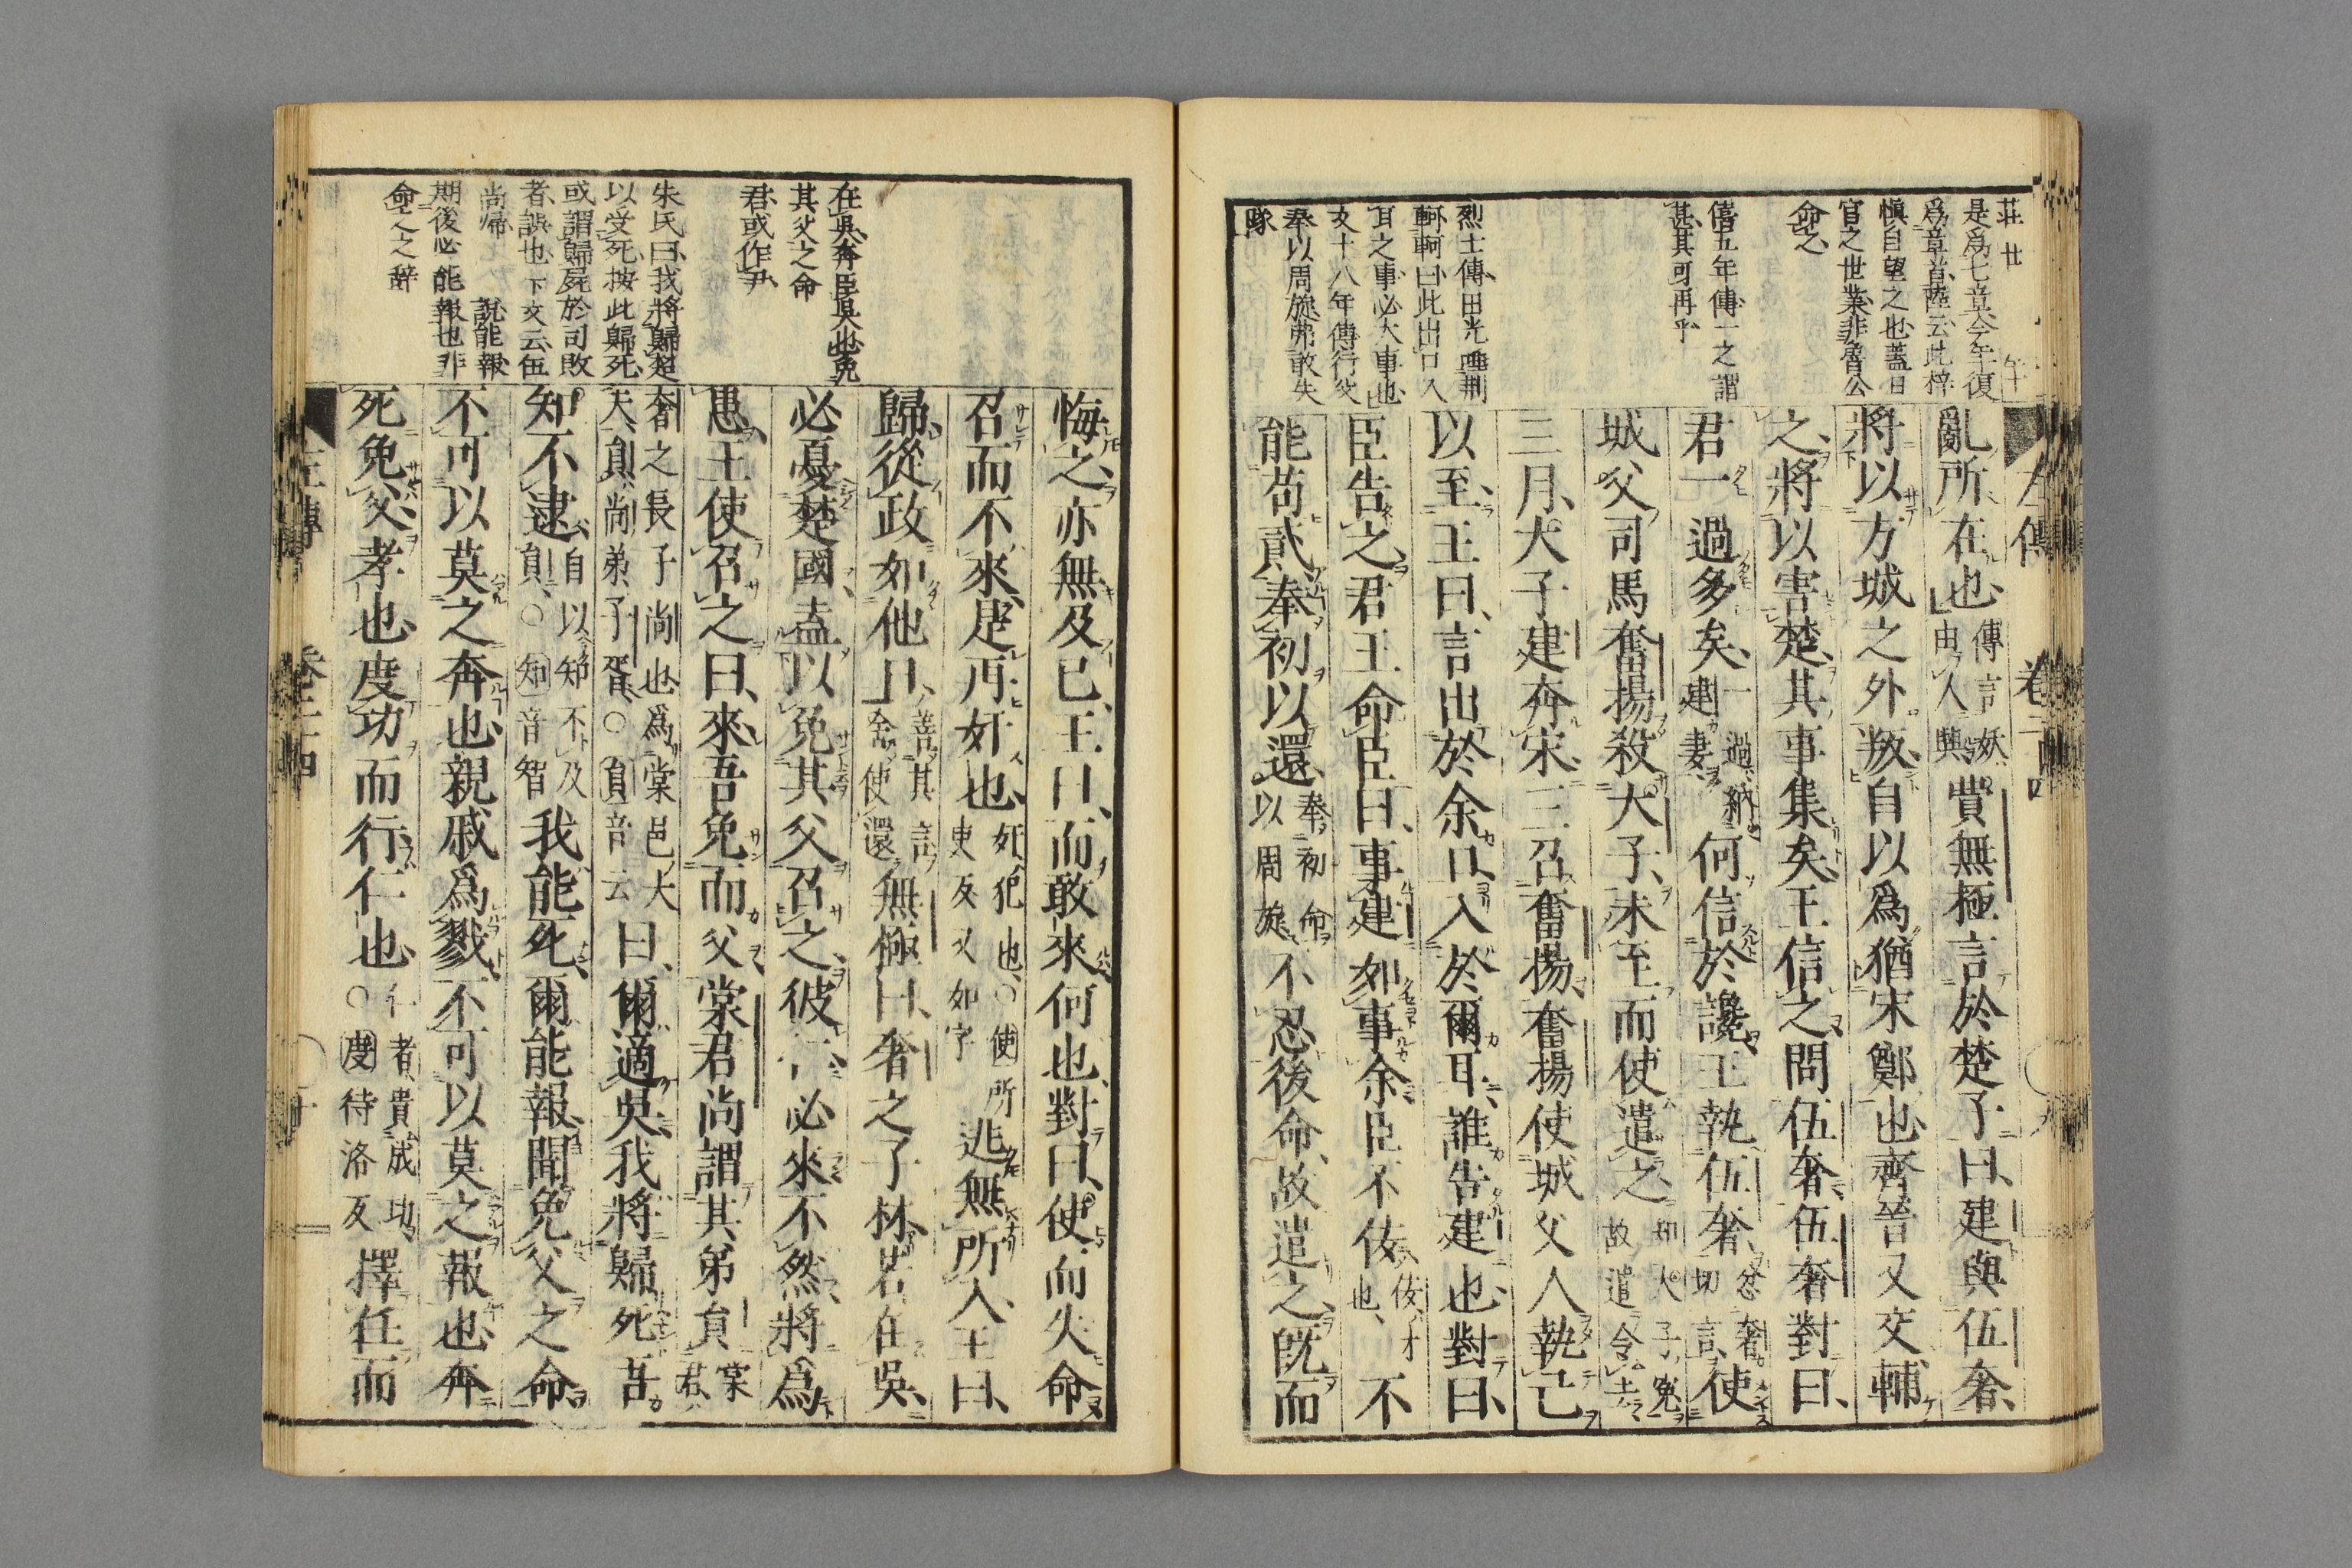 莊廿
是爲七章今年復
爲章首陸云此梓
愼自望之也蓋日
官之世業非魯公
命之
僖五年傳一之謂
甚其可再乎
烈士傳田光唾荆
軻軻曰此出口入
耳之事必大事也
文十八年傳行父
奉以周旋弗敢失
隊
左傳 卷二十四
亂所在也傳言妖由人興費無極言於楚子曰建與伍奢
將以方城之外叛自以爲猶宋鄭也齊晉又交輔
之將以害楚其事集矣王信之問伍奢伍奢對曰
君一過多矣一過納建妻何信於讒王執伍奢忿奢切言使
城父司馬奮揚殺大子未至而使遣之知大子冤故遣令去
三月大子建奔宋王召奮揚奮揚使城父人執己
以至王曰言出於余口入於爾耳誰告建也對曰
臣告之君王命臣曰事建如事余臣不佞佞才也不
能苟貳奉初以還奉初命以周旋不忍後命故遣之既而
在吳奔臣吳也免
其父之命
君或作尹
朱氏曰我將歸楚
以受死按此歸死
或謂歸屍於司敗
者誤也下文云伍
尚歸
説能報
期後必能報也非
命之之辭
悔之亦無及已王曰而敢來何也對曰使而失命
召而不來是再奸也奸犯也○使所吏反又如字逃無所入王曰
歸從政如他日善其言舍使還無極曰奢之子材若在吳
必憂楚國盍以免其父召之彼仁必來不然將爲
患王使召之曰來吾免而父棠君尚謂其弟員棠君
奢之長子尚也爲棠邑大夫員尚弟子胥○員音云曰爾適吳我將歸死吾
知不逮自以知不及員○知音智我能死爾能報聞免父之命
不可以莫之奔也親戚爲戮不可以莫之報也奔
死免父孝也度功而行仁也仁者貴成功○度待洛反擇任而
左傳 卷二十四 十